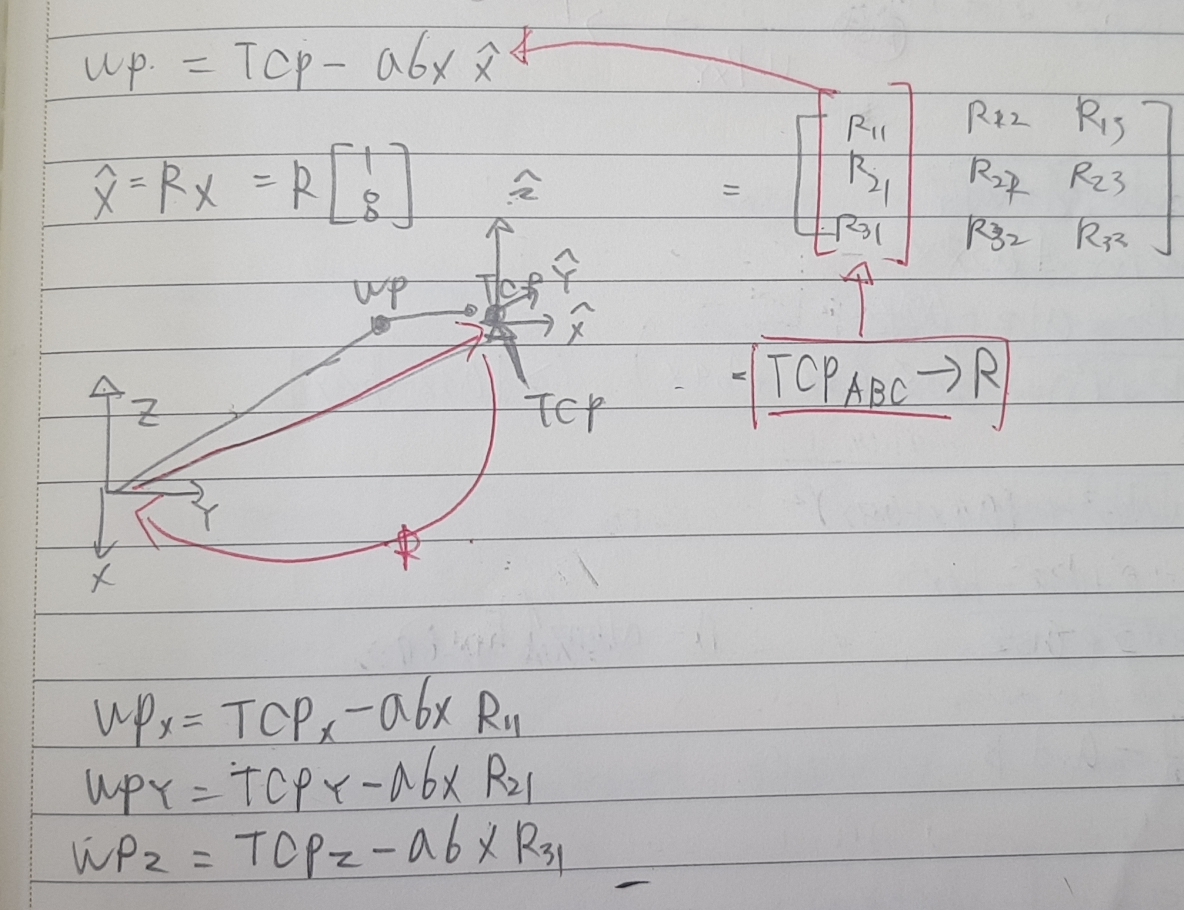 WP = TCP - a6x x̂
x̂ = Rx = R [1 0 0]
= [R11 R12 R13
R21 R22 R23
R31 R32 R33]
ẑ
WP
TCP
Ŷ
x̂
TCP
= TCP ABC → R
Z
Y
X
R
WPx = TCPx - a6x R11
WPY = TCPY - a6x R21
WPZ = TCPZ - a6x R31